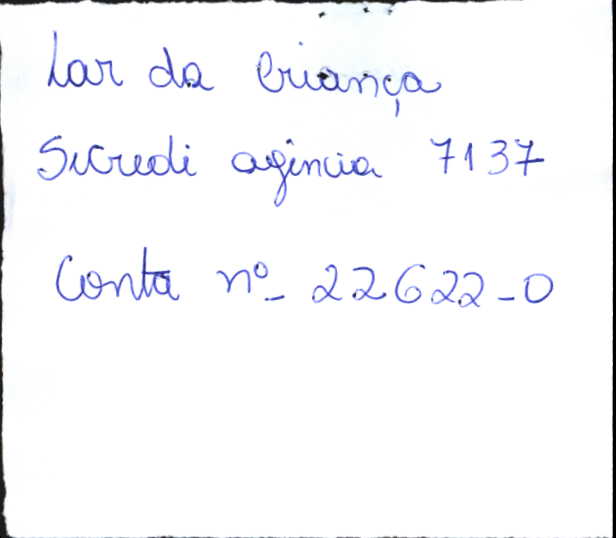 Lar da Criança
Sicredi agência 7137
Conta nº 22622-0